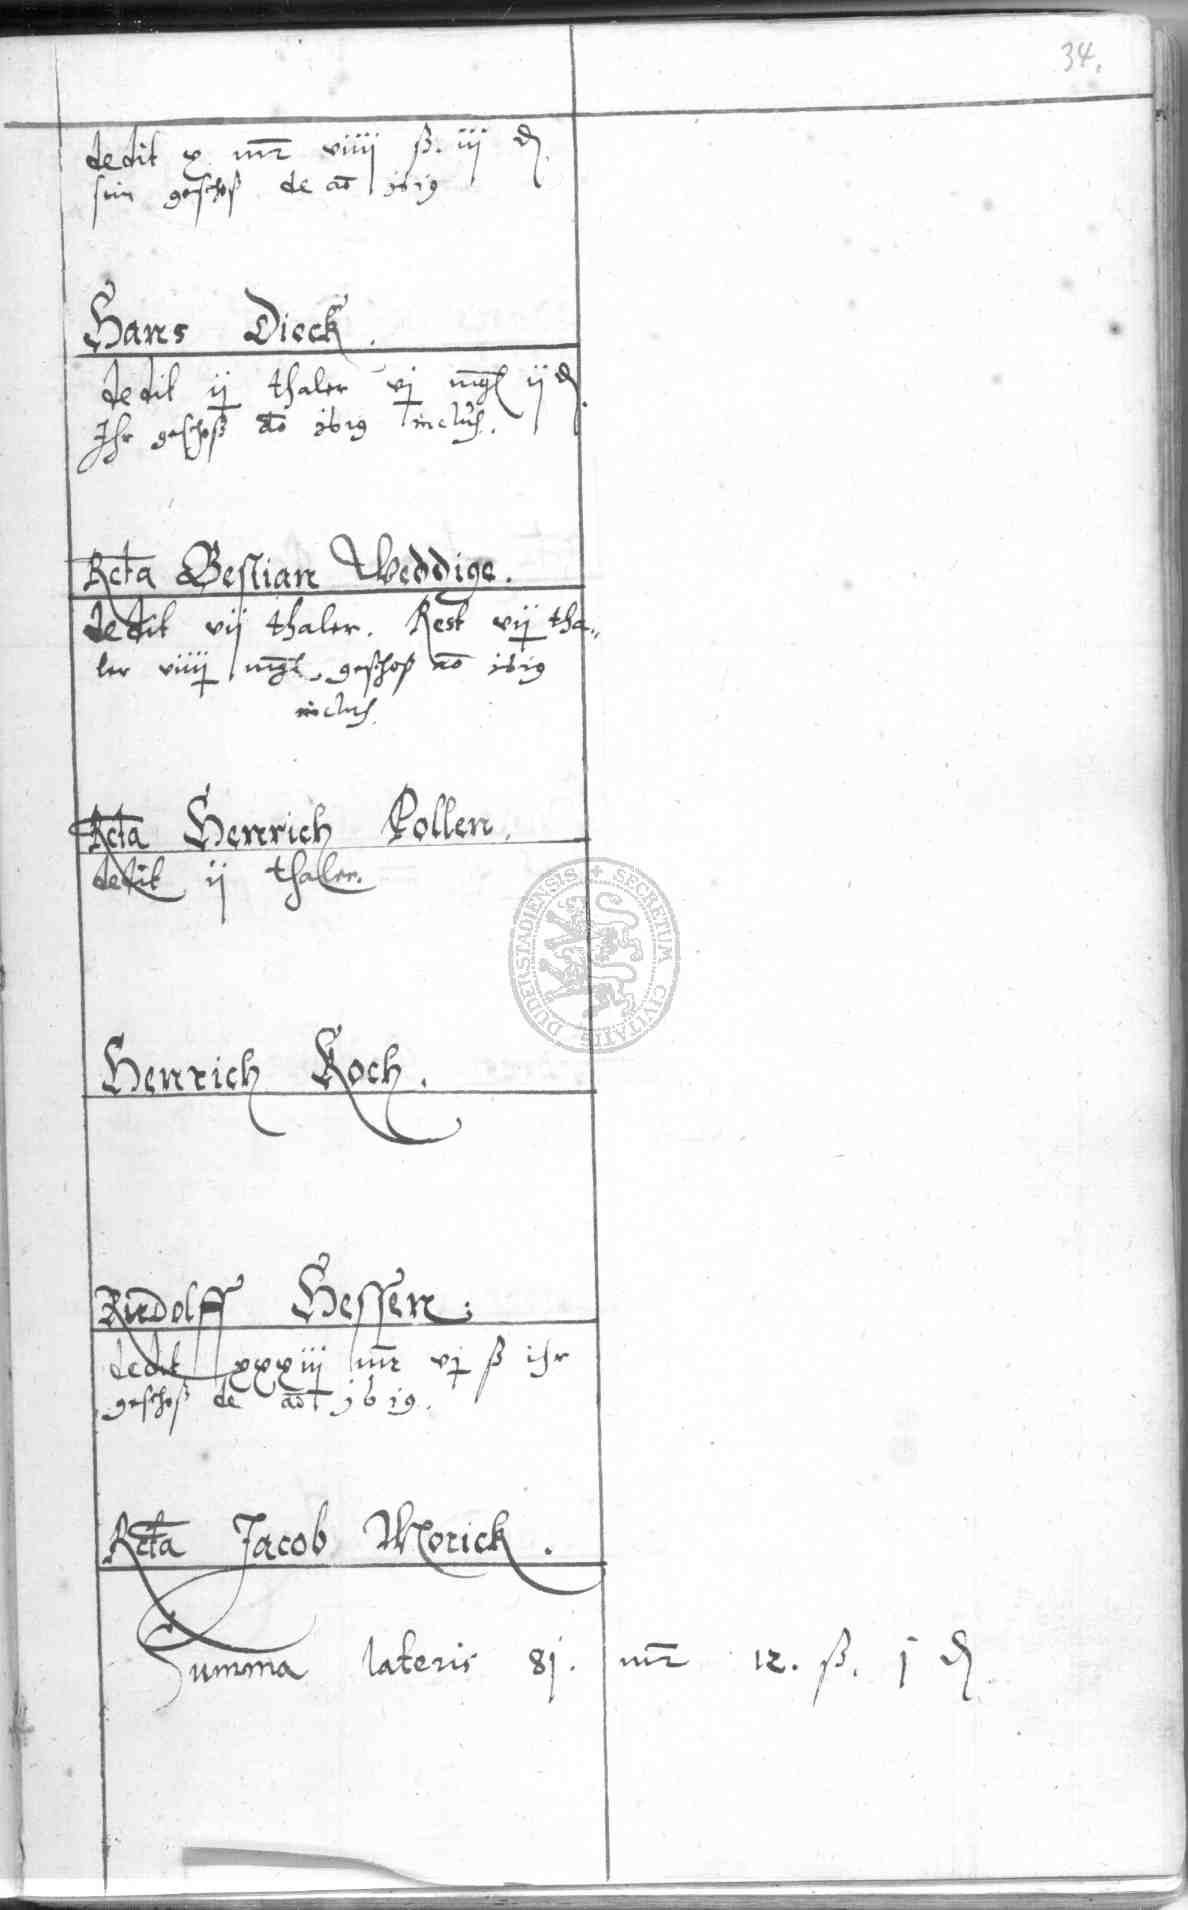 34.
dedit x mr viiii ß. iij d
sin geschoß de ao 1619
Hans Dieck.
dedit ij thaler vj mgl ij d.
Ihr geschoß ao 1619 inclus.
Rcta Bestian Weddige.
dedit vij thaler. Rest vij tha„
ler viiij mgl. geschoß ao 1619
inclus.
Rcta Henrich Pollen.
dedit ij thaller.
DUDERSTADIENSIS + SECRETUM CIVITATIS
Henrich Koch.
Rudolff Hessen.
dedit xxxiij mr vj ß ihr
geschoß de ao 1619.
Rcta Jacob Morick.
Summa lateris 81. mr 12. ß. j d